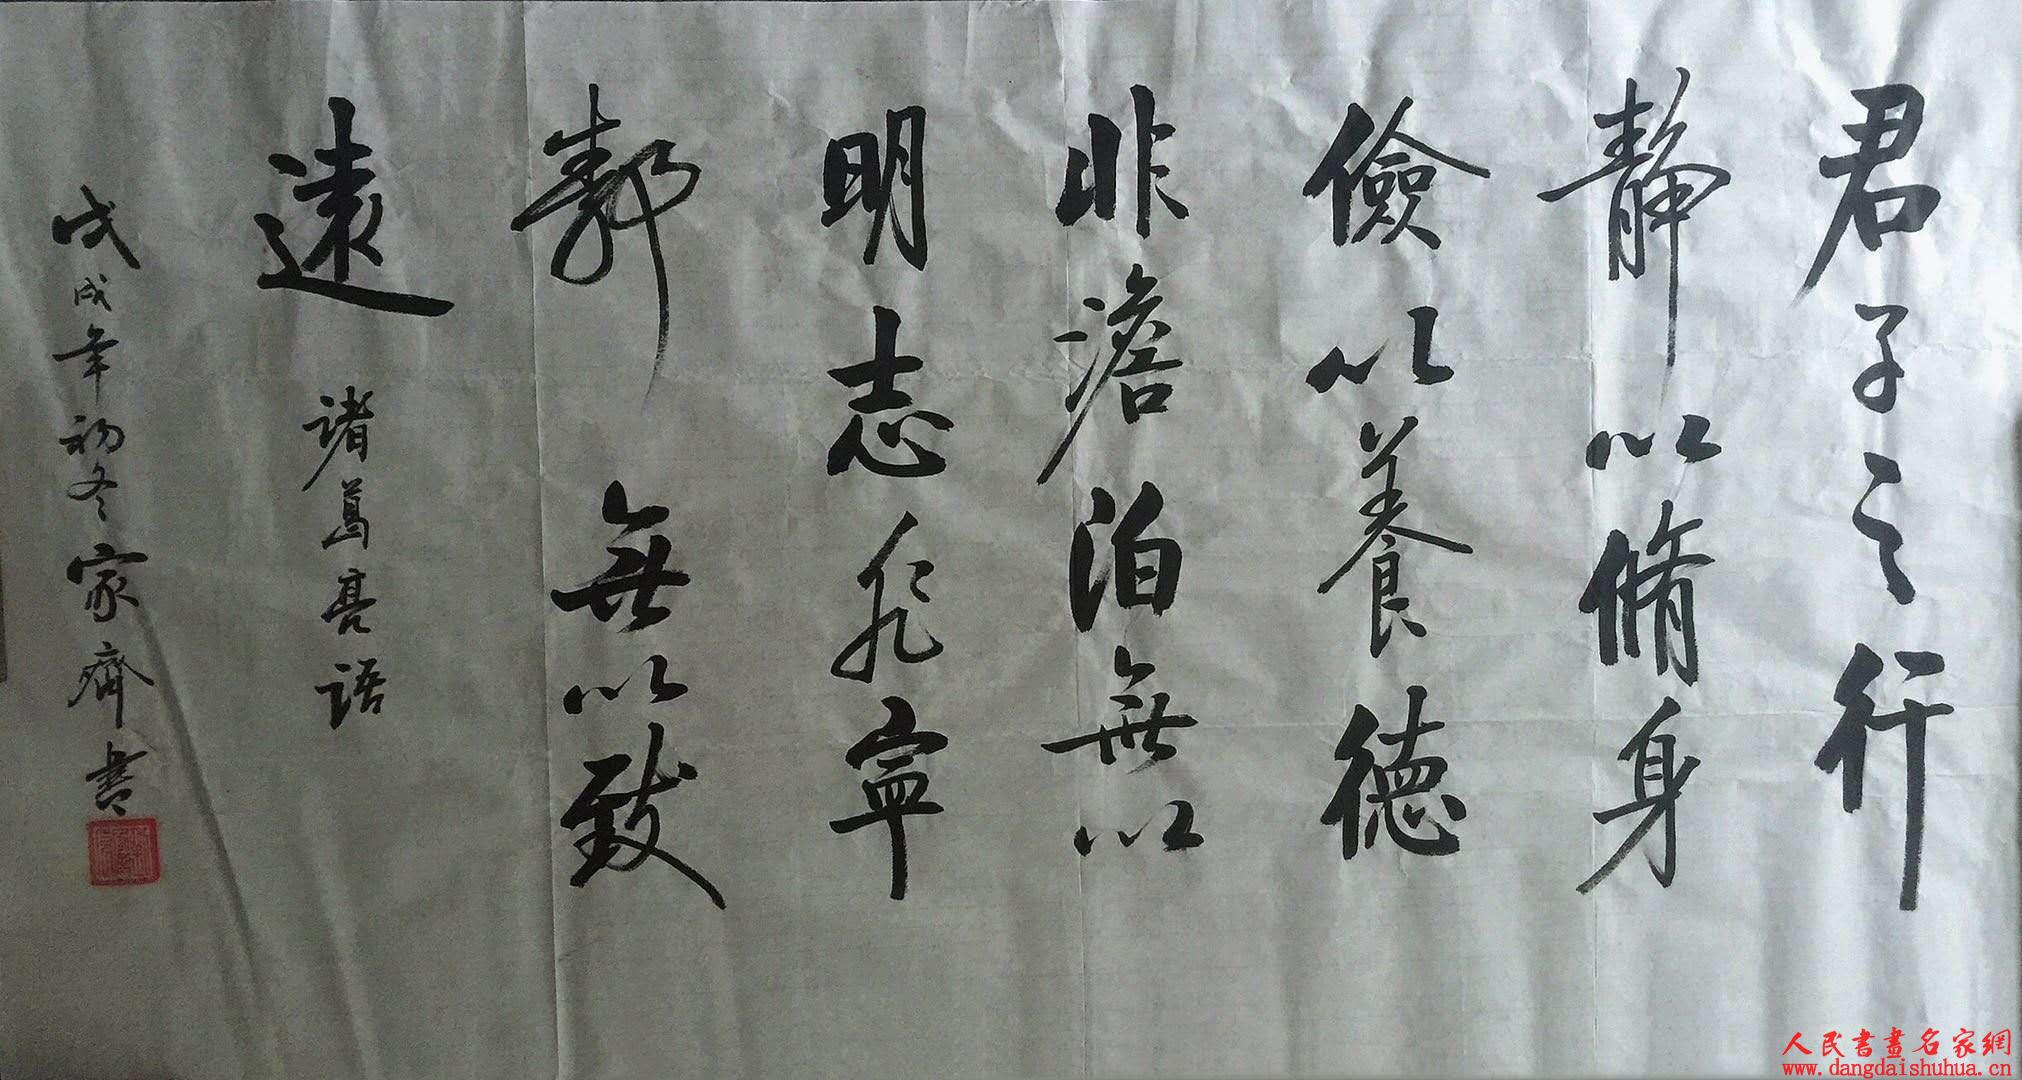 君子之行
靜以脩身
儉以養德
非澹泊無以
明志非寧
靜無以致
遠
諸葛亮語
戊戌年初冬家齊書
人民書畫名家網
www.dangdaishuhua.cn